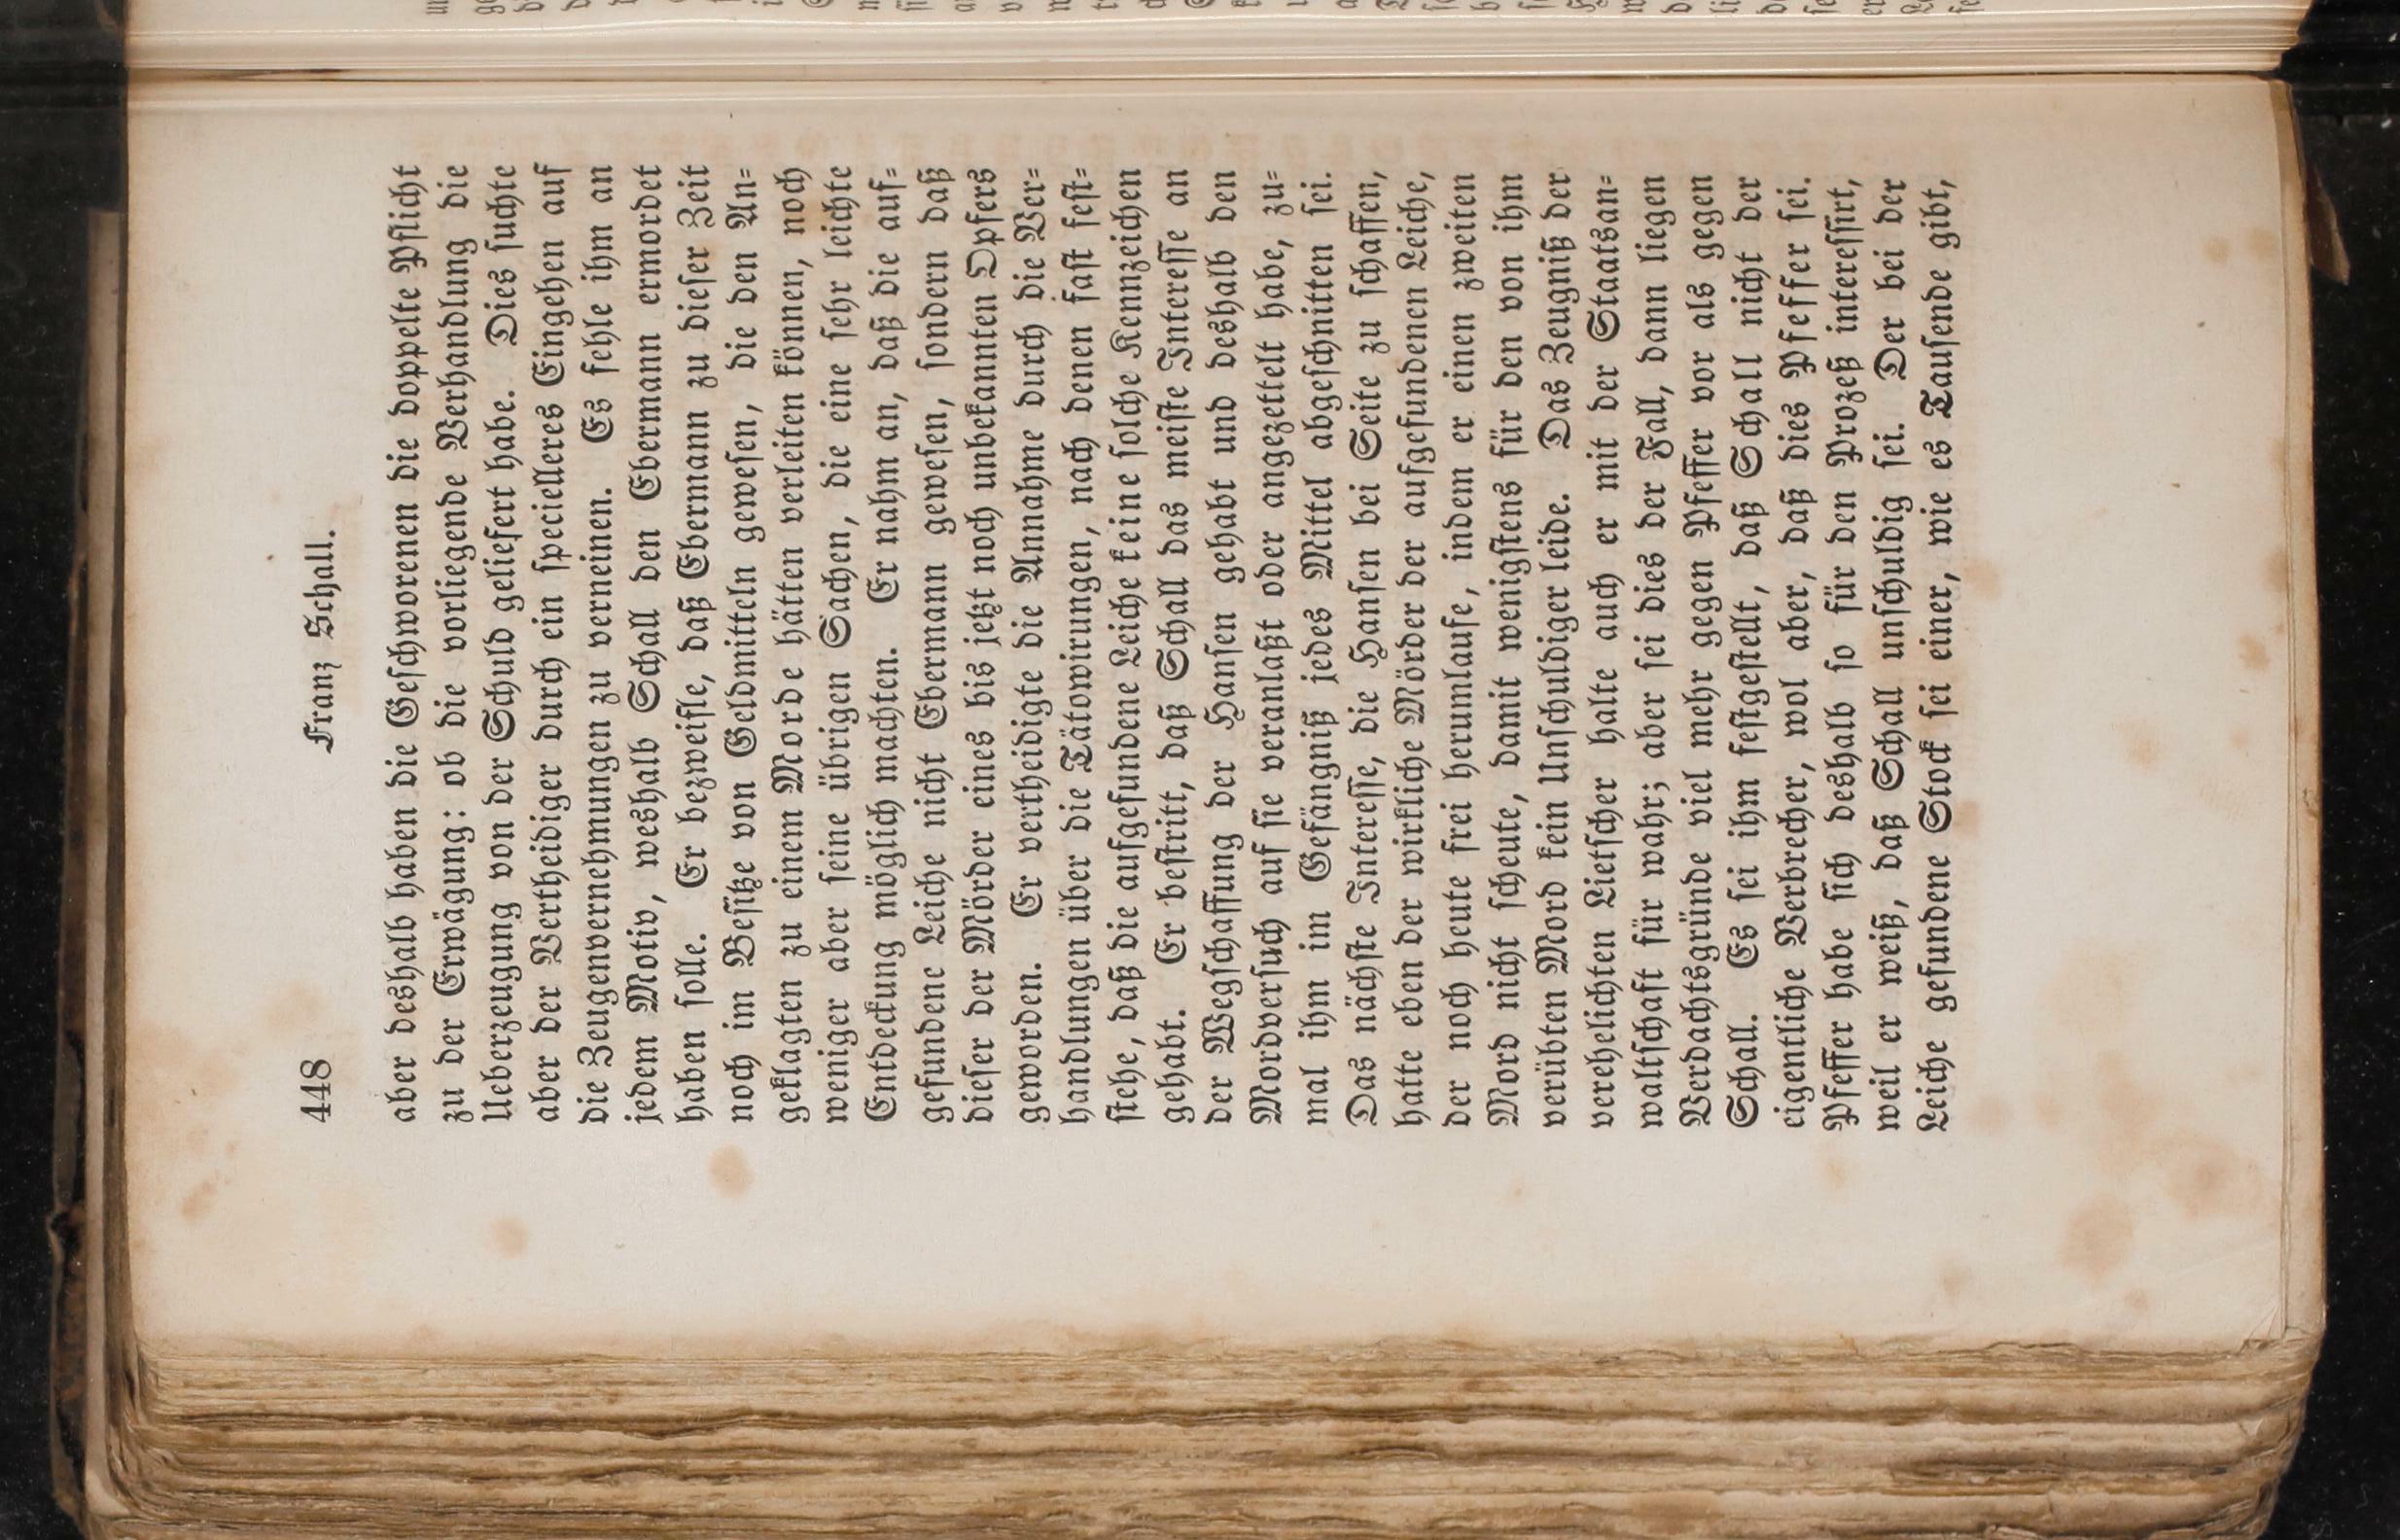 448 Franz Schall.
aber deshalb haben die Geschworenen die doppelte Pflicht
zu der Erwägung: ob die vorliegende Verhandlung die
Ueberzeugung von der Schuld geliefert habe. Dies suchte
aber der Vertheidiger durch ein specielleres Eingehen auf
die Zeugenvernehmungen zu verneinen. Es fehle ihm an
jedem Motiv, weshalb Schall den Ebermann ermordet
haben solle. Er bezweifle, daß Ebermann zu dieser Zeit
noch im Besitze von Geldmitteln gewesen, die den An-
geklagten zu einem Morde hätten verleiten können, noch
weniger aber seine übrigen Sachen, die eine sehr leichte
Entdeckung möglich machten. Er nahm an, daß die auf-
gefundene Leiche nicht Ebermann gewesen, sondern daß
dieser der Mörder eines bis jetzt noch unbekannten Opfers
geworden. Er vertheidigte die Annahme durch die Ver-
handlungen über die Tätowirungen, nach denen fast fest-
stehe, daß die aufgefundene Leiche keine solche Kennzeichen
gehabt. Er bestritt, daß Schall das meiste Interesse an
der Wegschaffung der Hansen gehabt und deshalb den
Mordversuch auf sie veranlaßt oder angezettelt habe, zu-
mal ihm im Gefängniß jedes Mittel abgeschnitten sei.
Das nächste Interesse, die Hansen bei Seite zu schaffen,
hatte eben der wirkliche Mörder der aufgefundenen Leiche,
der noch heute frei herumlaufe, indem er einen zweiten
Mord nicht scheute, damit wenigstens für den von ihm
verübten Mord kein Unschuldiger leide. Das Zeugniß der
verehelichten Lietscher halte auch er mit der Staatsan-
waltschaft für wahr; aber sei dies der Fall, dann liegen
Verdachtsgründe viel mehr gegen Pfeffer vor als gegen
Schall. Es sei ihm festgestellt, daß Schall nicht der
eigentliche Verbrecher, wol aber, daß dies Pfeffer sei.
Pfeffer habe sich deshalb so für den Prozeß interessirt,
weil er weiß, daß Schall unschuldig sei. Der bei der
Leiche gefundene Stock sei einer, wie es Tausende gibt,